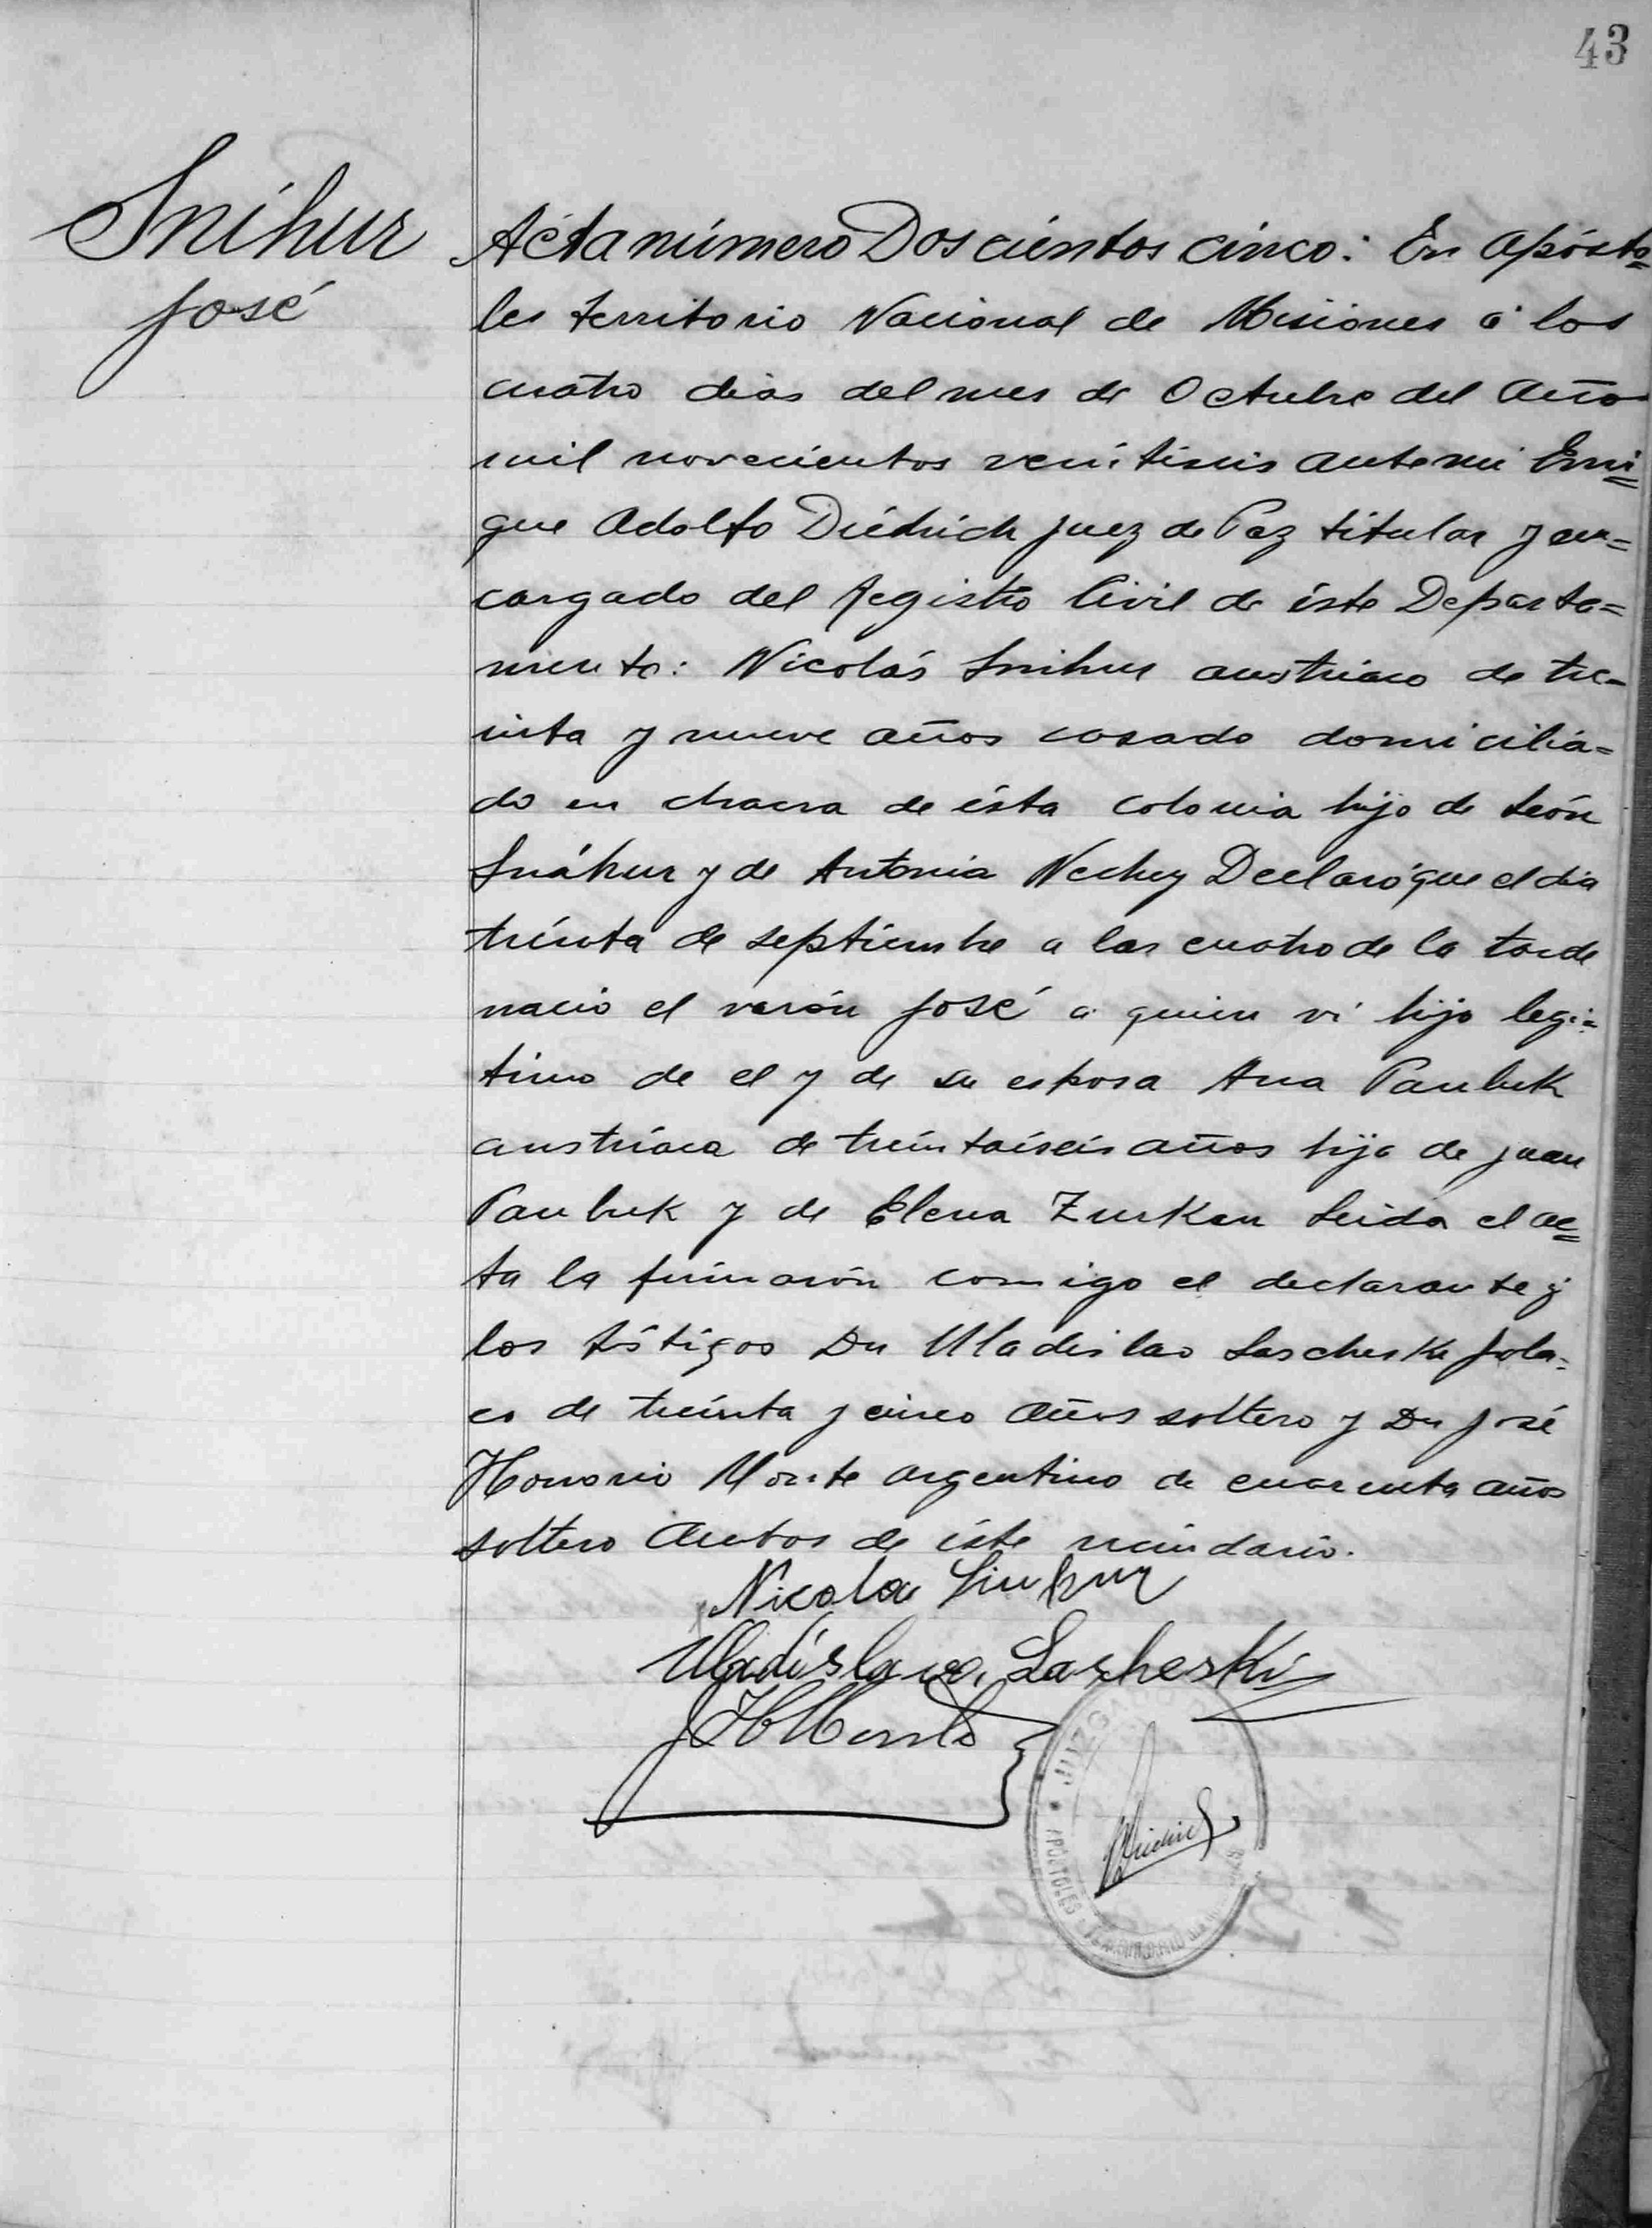 43
Snihur
José
Acta número Doscientos cinco: En Apósto=
les territorio Nacional de Misiones á los
cuatro dias del mes de Octubre del Año
mil novecientos veintiseis ante mi Enri=
que Adolfo Diedrich Juez de Paz titular y en=
cargado del Registro Civil de éste Departa=
mento: Nicolás Snihur austriaco de tre=
inta y nueve años casado domicilia=
do en chacra de ésta colonia hijo de León
Snihur y de Antonia Declaró que el dia
treinta de septiembre a las cuatro de la tarde
nació el varón José a quien vi hijo legi=
timo de el y de su esposa Ana Paubuk
austriaca de treintaiseis años hija de Juan
Paubuk y de Elena Zurkan Leida el ac=
ta la firmarón comigo el declarante y
los téstigos Dn Uladislao Lascheski pola=
co de treinta y cinco años soltero y Dn José
Honorio Monte argentino de cuarenta años
soltero Ambos de éste vecindario.
Nicola Snihur
Uladislavo Lascheski
JHMonte
JUZGADO
APOSTOLES